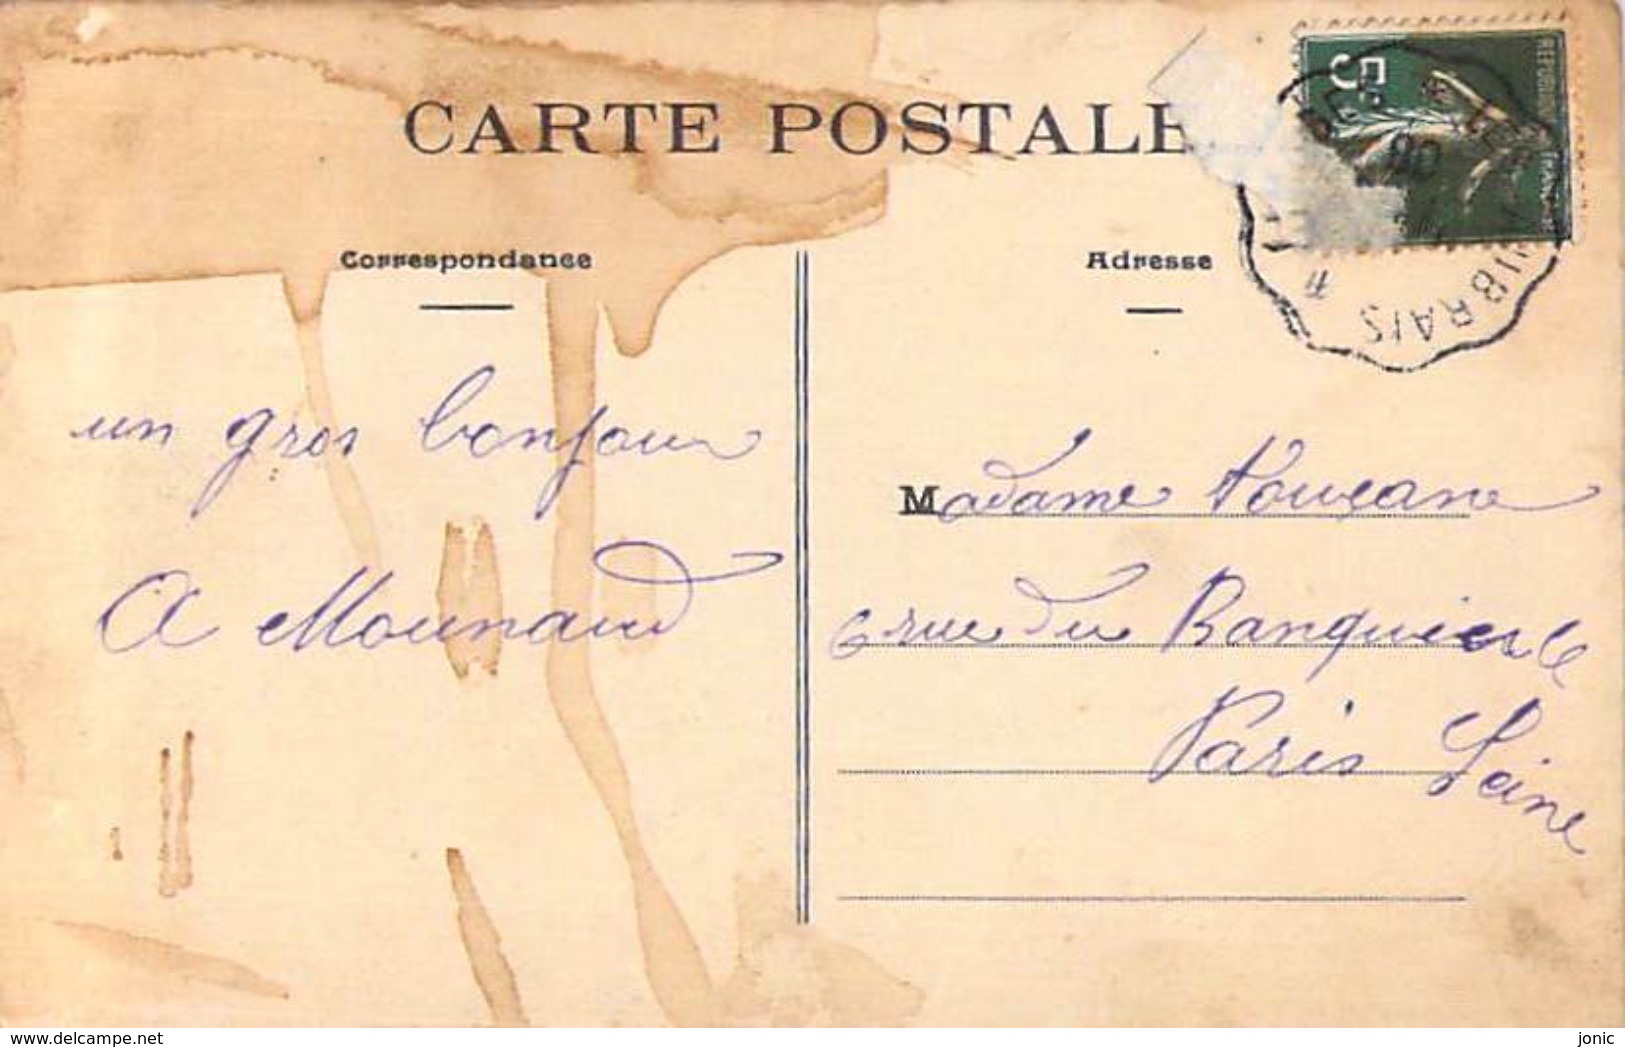 CARTE POSTALE
Correspondance
Adresse
5
BRAIS
un gros bonjour
A Mounaud
Madame
6 rue du Banquier 6
Paris Seine
www.delcampe.net
jonic